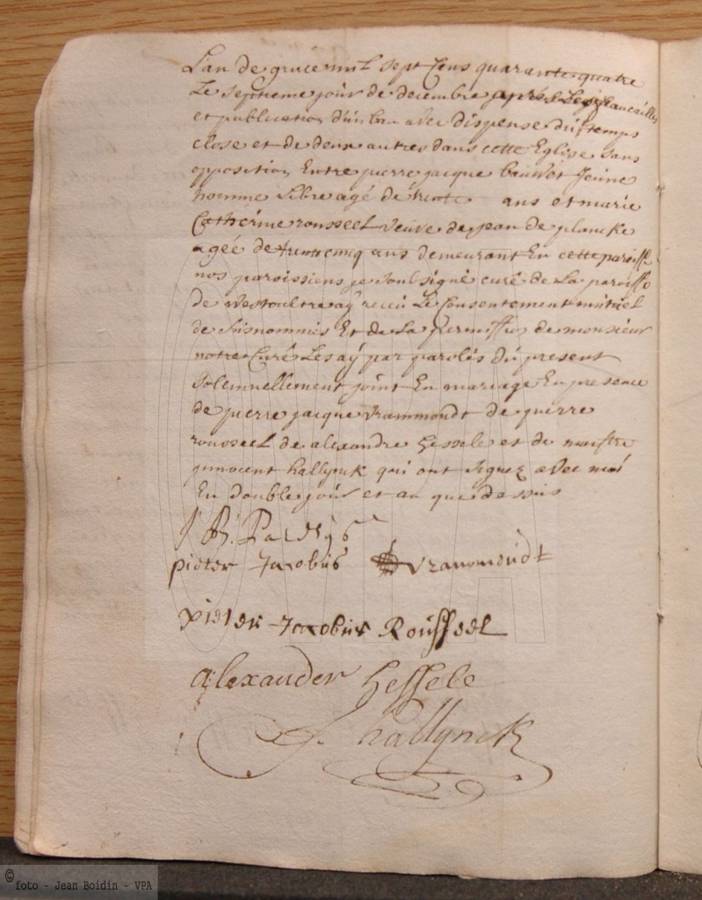 L'an de grace mil sept Cens quarante quatre
Le septieme jour de decembre après Les fiancailles
et publication d'un ban avec dispense du temps
close et de deux autres dans cette Eglise sans
opposition Entre pierre jacque bauwet Jeune
homme Libre agé de trente ans et marie
Catherine roussel veuve de jean de plancke
agée de trente cincq ans demeurant En cette paroisse
nos paroissiens je soussigné curé de La paroisse
de Westoultre aÿ receu Le Consentement mutuel
de susnommés Et de La permission de monsieur
notre Curé Les aÿ par paroles du present
solemnellement joint En mariage En presence
de pierre jacque Vrammondt de pierre
roussel de alexandre hessele et de maistre
innocent hallynck qui ont signez avec moi
En double jour et an que dessus
pieter Jacobús Vrammondt
pieter Jacobus Roussel
alexander hessele
J. hallynck
© foto - Jean Boidin - VPA